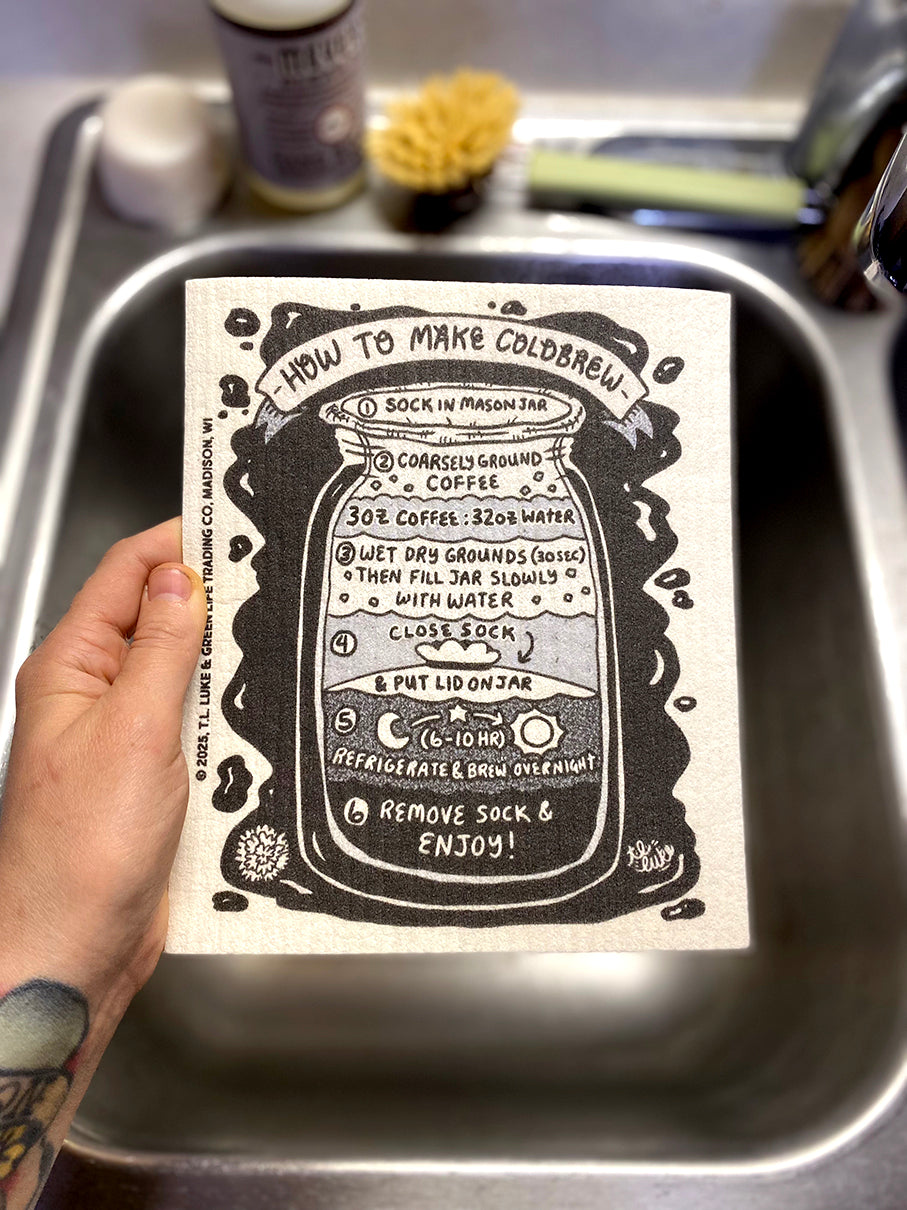 HOW TO MAKE COLDBREW
① SOCK IN MASON JAR
② COARSELY GROUND
COFFEE
3OZ COFFEE : 32OZ WATER
③ WET DRY GROUNDS (30 SEC)
THEN FILL JAR SLOWLY
WITH WATER
④ CLOSE SOCK
& PUT LID ON JAR
⑤ (6-10 HR)
REFRIGERATE & BREW OVERNIGHT
⑥ REMOVE SOCK &
ENJOY!
t.l. luke
© 2025, T.L. LUKE & GREEN LIFE TRADING CO. MADISON, WI